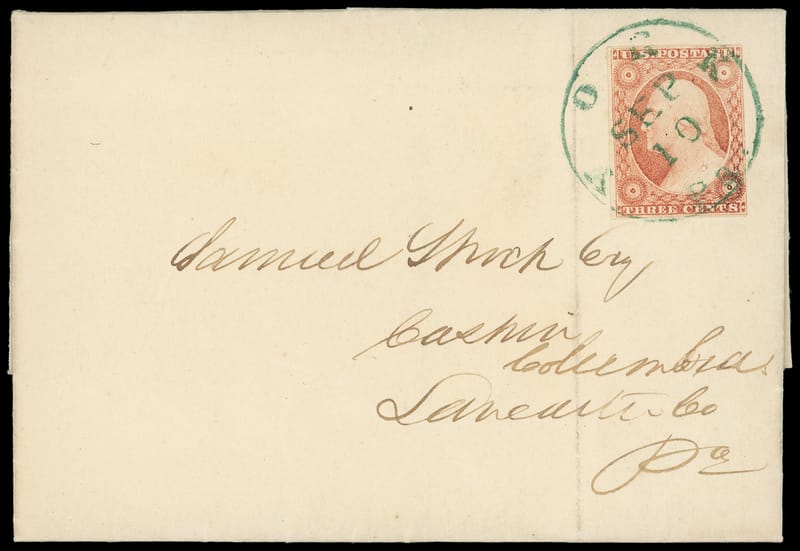 YORK Pa.
SEP
10
U.S. POSTAGE
THREE CENTS
Samuel Shoch Esq
Cashier
Columbia
Lancaster Co
Pa